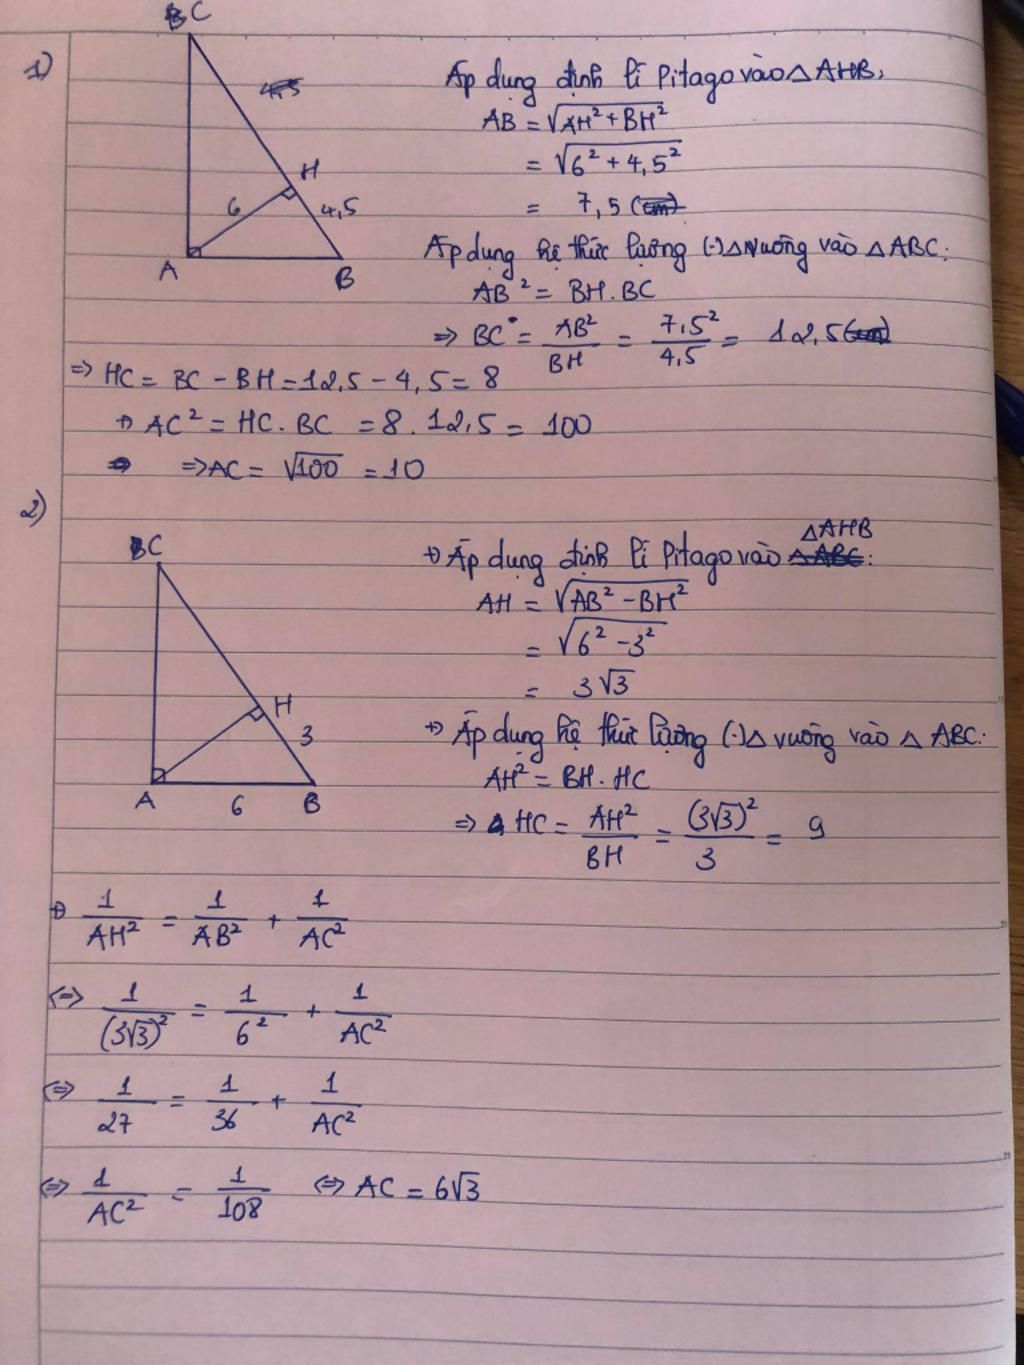 1)
C
4,5
H
6
4,5
A
B
Áp dụng định lí Pitago vào △AHB:
AB = √AH² + BH²
= √6² + 4,5²
= 7,5 (cm)
Áp dụng hệ thức lượng (·) △ vuông vào △ABC:
AB² = BH.BC
⇒ BC = AB²/BH = 7,5²/4,5 = 12,5 (cm)
⇒ HC = BC - BH = 12,5 - 4,5 = 8
+) AC² = HC. BC = 8. 12,5 = 100
⇒ AC = √100 = 10
2)
C
H
3
A
6
B
△AHB
+) Áp dụng định lí Pitago vào △ABC:
AH = √AB² - BH²
= √6² - 3²
= 3√3
+) Áp dụng hệ thức lượng (·) △ vuông vào △ ABC:
AH² = BH. HC
⇒ HC = AH²/BH = (3√3)²/3 = 9
+) 1/AH² = 1/AB² + 1/AC²
⇔ 1/(3√3)² = 1/6² + 1/AC²
⇔ 1/27 = 1/36 + 1/AC²
⇔ 1/AC² = 1/108 ⇔ AC = 6√3